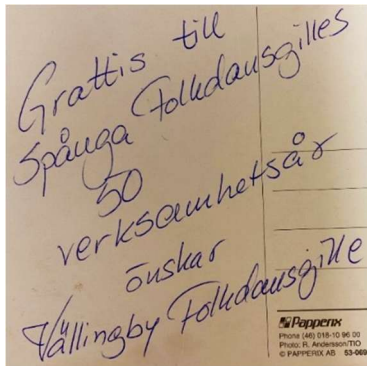 Grattis till
Spånga Folkdansgilles
50
verksamhetsår
önskar
Vällingby Folkdansgille
Papperix
Phone (46) 018-10 96 00
Photo: R. Andersson/TIO
© PAPPERIX AB 53-069